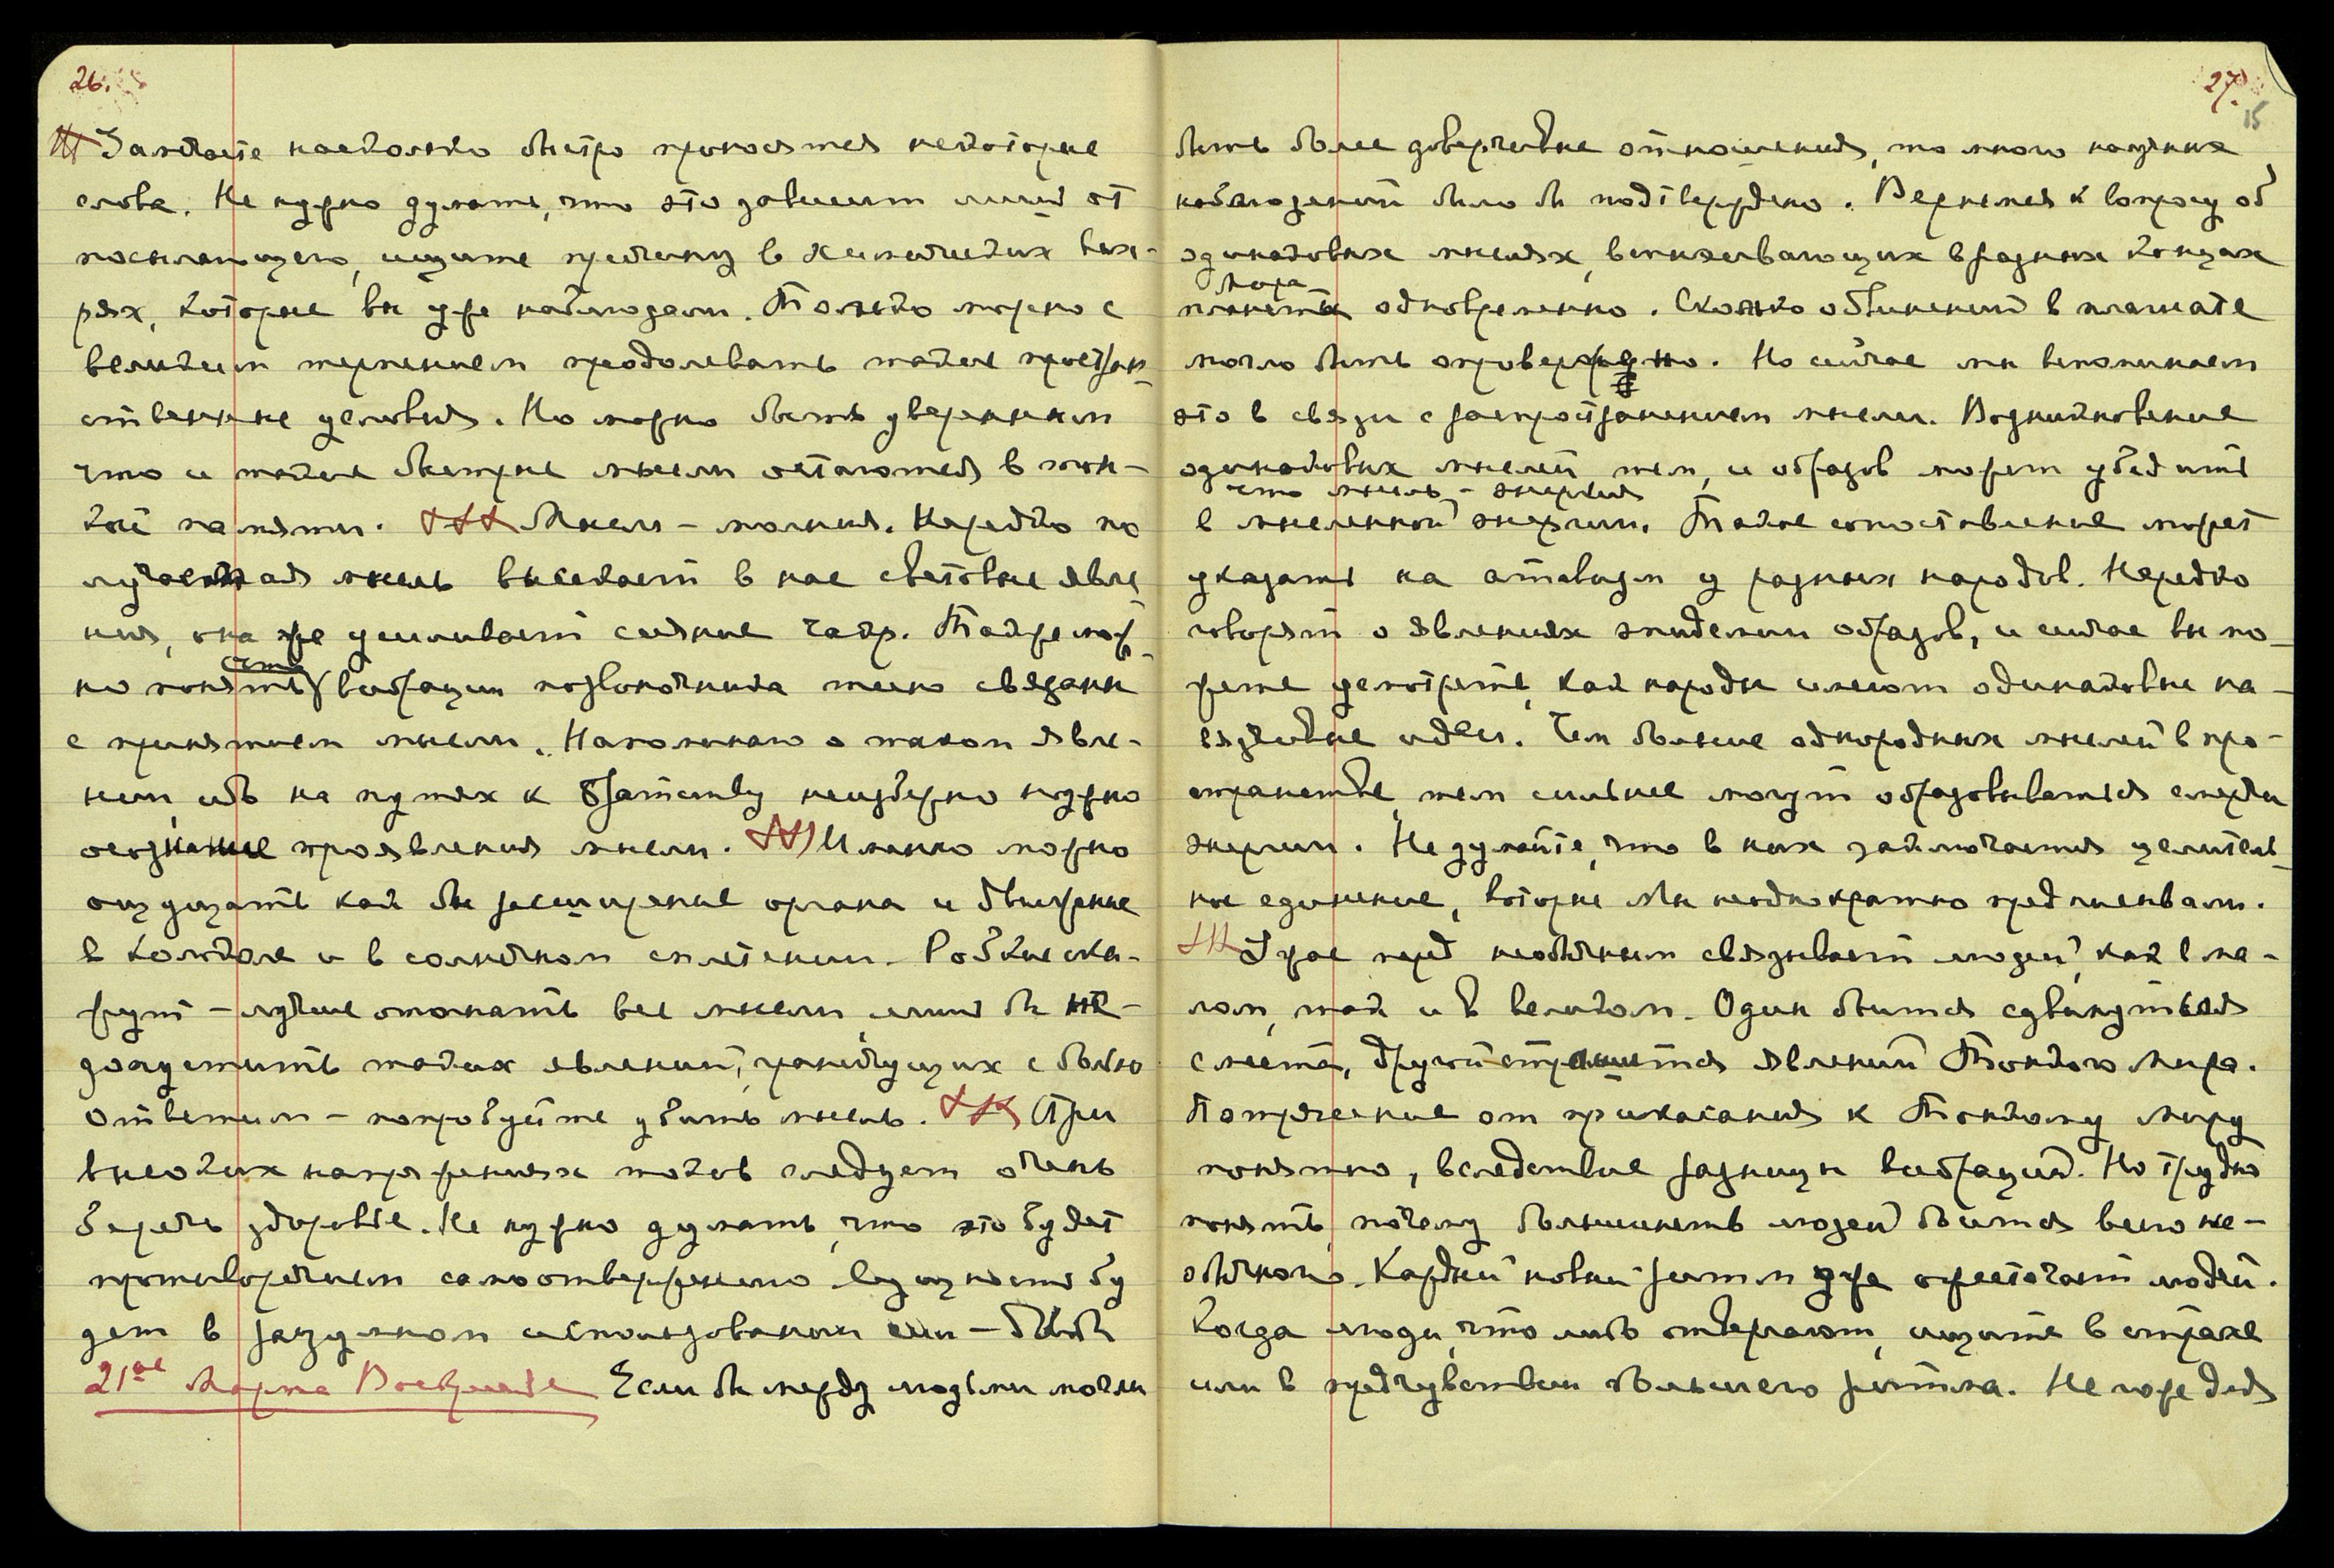 26.
Замечаете насколько быстро приносятся некоторые
слова. Не нужно думать, что это зависит лишь от
посылающего, ищите причину в химических вих-
рях, которые вы уже наблюдали. Только можно с
великим терпением преодолевать такие простран-
ственные условия. Но можно быть уверенным
что и такие быстрые мысли остаются в тон-
кой памяти. Мысли – молния. Нередко по
лученная мысль высекает в нас световые явле
ния, она же усиливает сияние чакр. Также мож-
но понять вибрации позвоночника тесно связаны
с принятием мысли. Напоминаю о таком явле-
нии, ибо на путях к Братству неизбежно нужно
осознание проявления мысли. Именно можно
ощущать как бы расширение органа и движение
в Колоколе и в солнечном сплетении. Робкие ска-
жут – лучше отогнать все мысли, лишь бы не-
допустить таких явлений, граничущих с болью
ответим – попробуйте убить мысль. При
высоких напряжениях токов следует очень
беречь здоровье. Не нужно думать, что это будет
противоречием самоотвержению сущность бу
дет в разумном использовании сил –
21ое Марта Воскресенье Если бы между людьми могли
27.
15
быть более доверчивые отношения, то много научных
наблюдений было бы подтверждено. Вернемся к вопросу об
одинаковых мыслях, вспыхивающих в разных концах
Мира
планеты одновременно. Сколько обвинений в плагиате
могло быть опровержено. Но сейчас мы вспоминаем
это в связи с распространением мысли. Возникновение
одинаковых мыслей, тем, и образов может убедить
что мысль – энергия
в мысленной энергии. Такое сопоставление может
указать на атавизм у разных народов. Нередко
говорят о явлениях эпидемии образов, и сейчас вы мо-
жете усмотреть, как народы имеют одинаковые на-
вязчивые идеи. Чем больше однородных мыслей в про-
странстве, тем сильнее могут образовываться смерчи
энергии. Не думайте, что в них заключается целитель-
ное единение, которые Мы неоднократно предписывали.
Страх перед необычным связывает людей, как в ма-
лом, так и в великом. Один боится сдвинуться
с места, другой страшится явлений Тонкого Мира.
Потрясение от прикасания к Тонкому Миру
понятно, вследствие разницы вибраций. Но трудно
понять, почему большинство людей боится всего не-
обычного. Каждый новый ритм уже ожесточает людей.
Когда люди, что либо отвергают, ищите в страхе
или в предчувствии большего ритма. Не гоже для